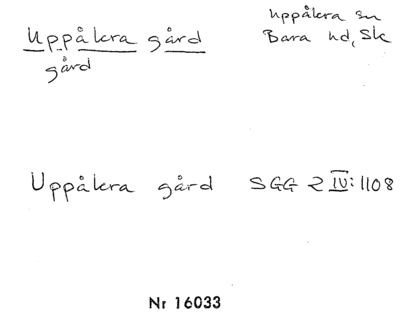 Uppåkra gård
gård
Uppåkra sn
Bara hd, Sk
Uppåkra gård SGG 2 IV:1108
Nr 16033